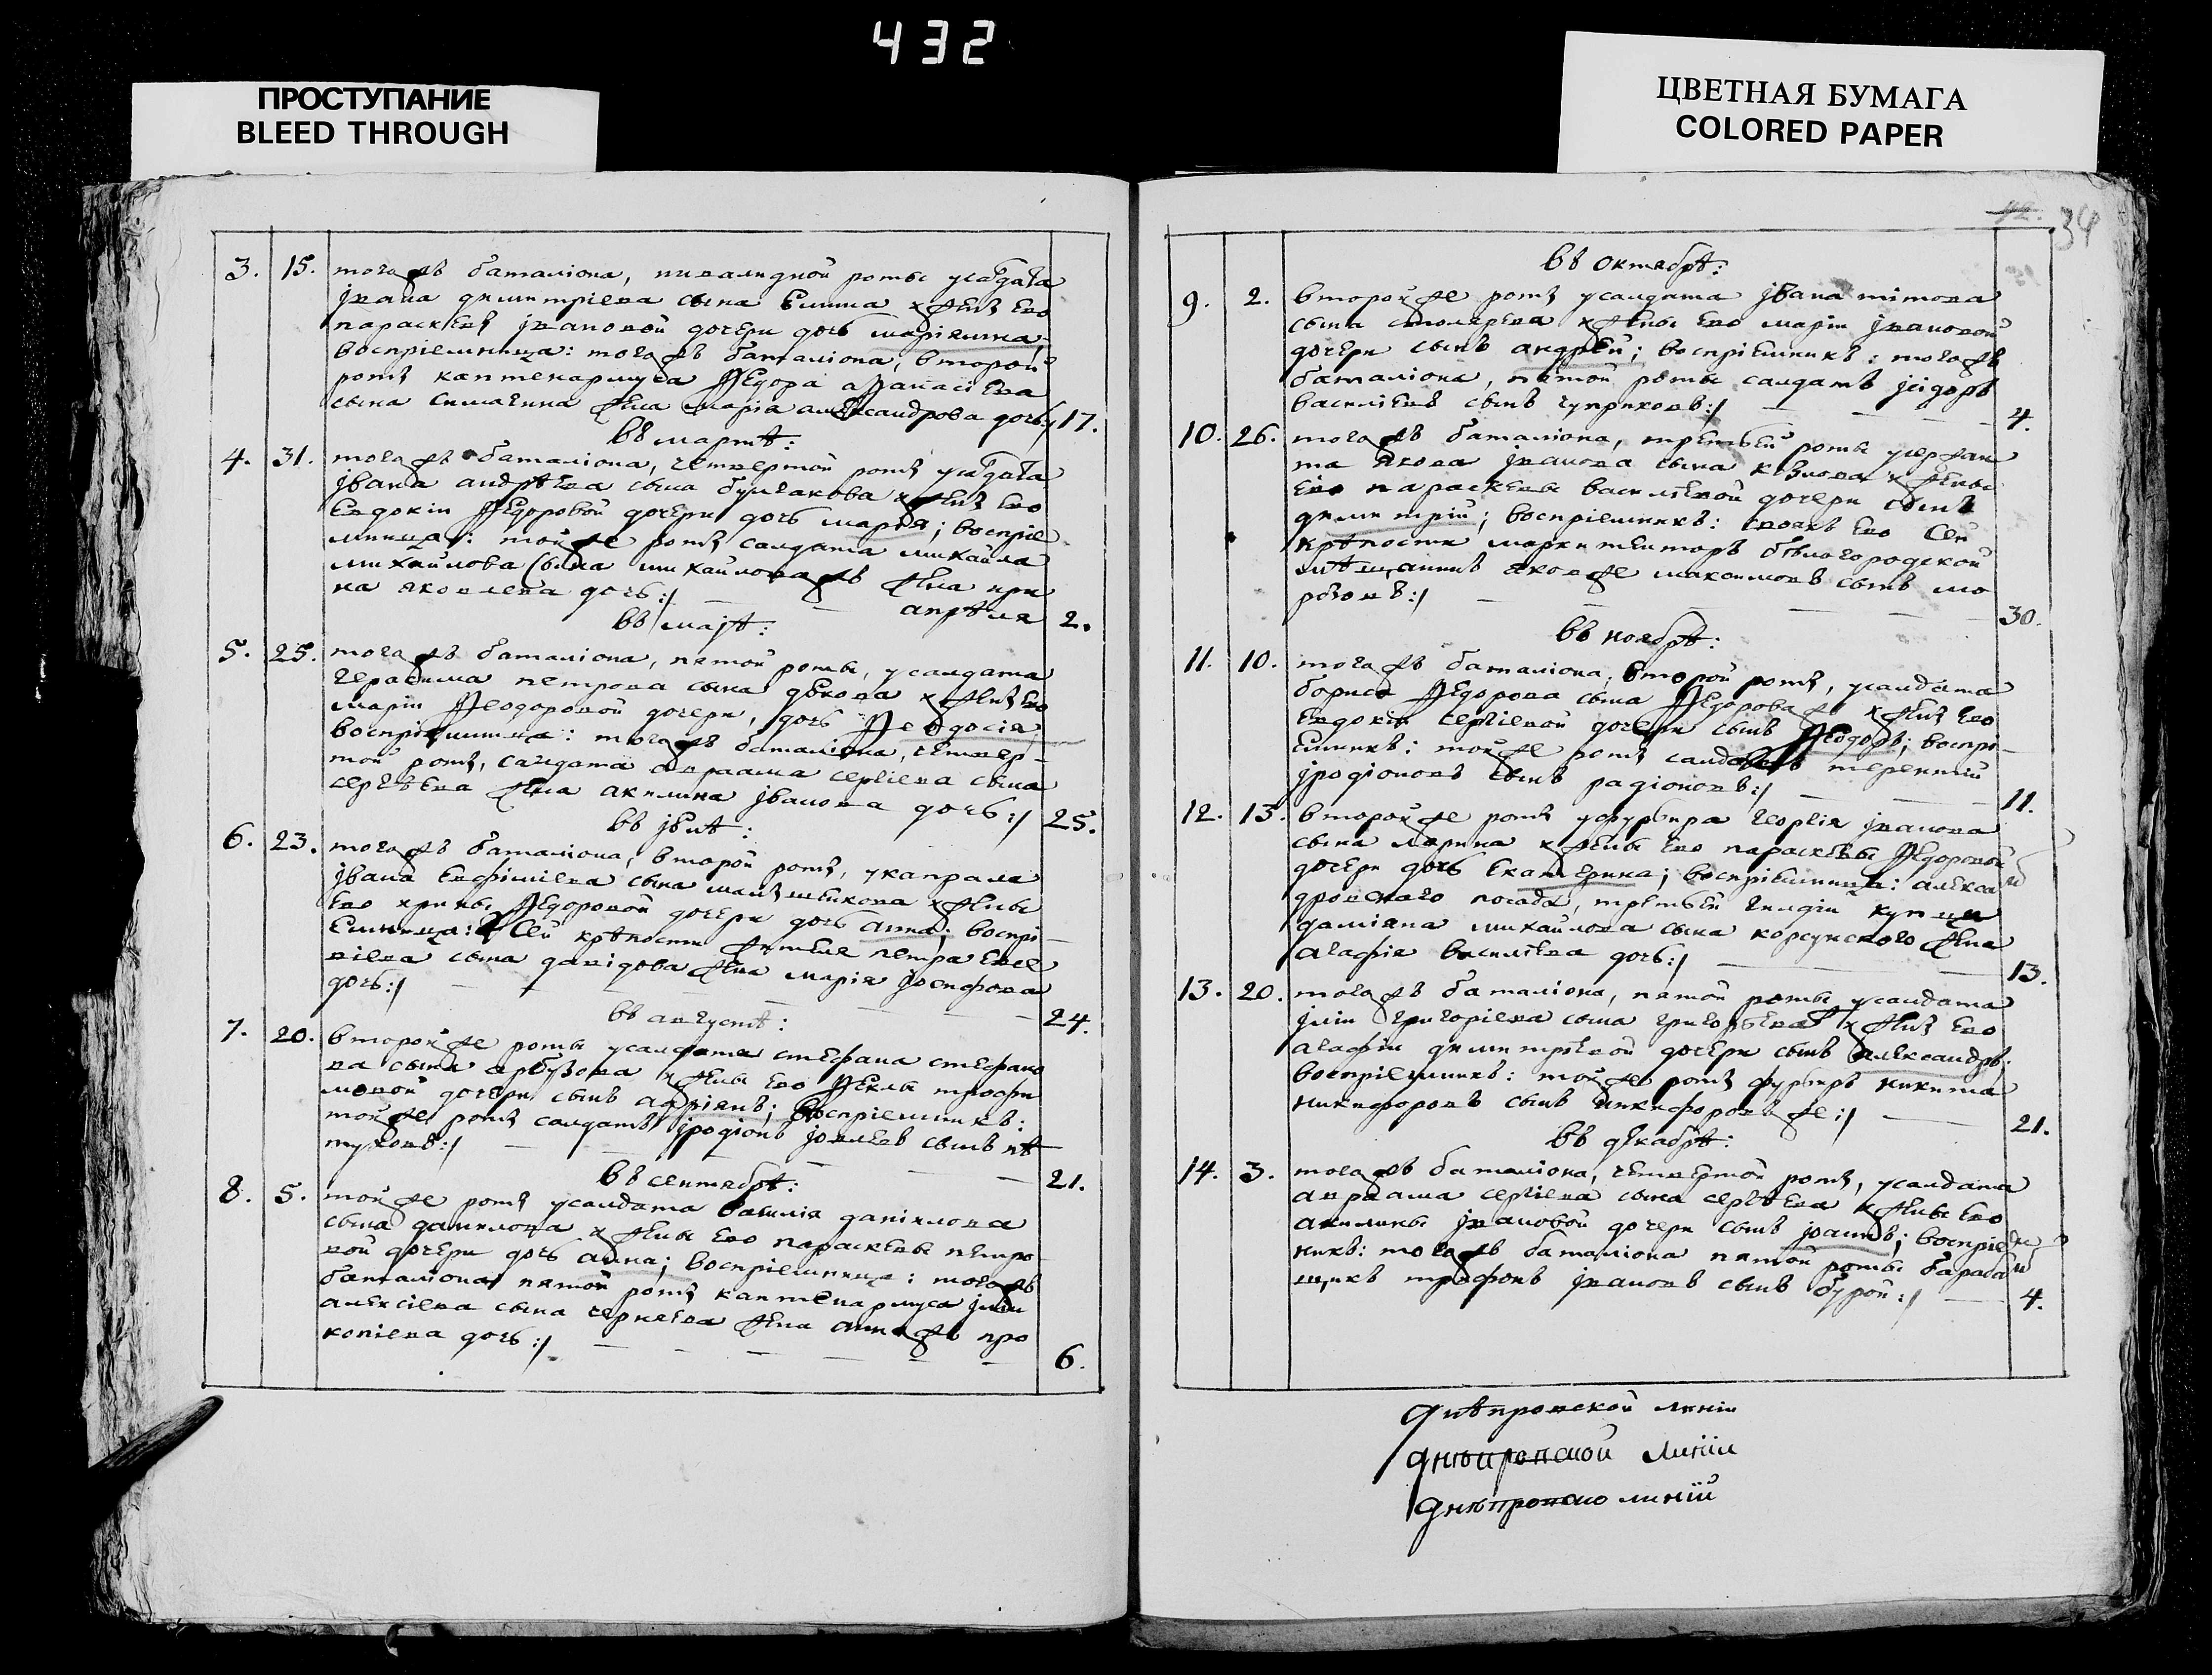 432
ПРОСТУПАНИЕ
BLEED THROUGH
ЦВЕТНАЯ БУМАГА
COLORED PAPER
34
3. 15. тогажъ баталіона, инвалидной роты усалдата
їзана димитріева сына Емина жены его
параскевы їзановой дочери дочь маріямна
воспріемница: тогажъ баталіона, второй
роты каптенармуса Ѳедора аѲанасіева
сына симачина жена маріа александрова дочь:/ 17.
въ мартѣ:
4. 31. тогажъ баталіона, четвертой роты усалдата
їзана андрѣева сына булгакова жены его
Евдокіи Ѳедоровой дочери дочь маріа; воспріе
мница: тойже роты салдата михайла
михайлова сына михайловажъ жена ири
на яковлева дочь:/ — — апрѣля 2.
въ маїѣ:
5. 25. тогажъ баталіона, пятой роты, усалдата
герасима петрова сына жены его
маріи Ѳеодоровой дочери, дочь Ѳеодосія
воспріемница: тогажъ баталіона, четвер-
той роты, салдата авраама сергіева сына
сергѣева жена акилина їванова дочь:/ 25.
въ їюнѣ:
6. 23. тогажъ баталіона, второй роты, укапрала
їзана Евфиміева сына жены
его ирины Ѳедоровой дочери дочь анна; воспрі-
емница: Сей крѣпости жителя петра
сына давидова жена маріа їосифова
дочь:/ — — — — — 24.
въ августѣ:
7. 20. второйже роты усалдата стефана стефано
ва сына арбузова жены его Ѳеклы трофи
мовой дочери сынъ адріянъ; воспріемникъ:
тойже роты салдатъ їродіонъ їовлевъ сынъ пѣ
туховъ:/ — — — — — 21.
въ сентябрѣ:
8. 5. тойже роты усалдата василія даніилова
сына данилова жены его параскевы петро
вой дочери дочь анна; воспріемница: тогажъ
баталіона пятой роты каптенармуса їліи
алексіева сына чернѣева жена аннаже про
копіева дочь:/ — — — — — 6.
въ октябрѣ:
9. 2. второйже роты усалдата їзана тітова
сына столярева жены его маріи їзановой
дочери сынъ андрей; воспріемникъ: тогажъ
баталіона, пятой роты салдатъ їсідоръ
василіевъ сынъ чуприковъ:/ — — — 4.
10. 26. тогажъ баталіона, третьей роты усержан
та якова їзанова сына жены
его параскевы василіевой дочери сынъ
димитрій; воспріемникъ: своякъ его Сей
крѣпости маркитенторъ бѣлогородской
мѣщанинъ яковже максимовъ сынъ мо
розовъ:/ — — — — 30.
въ ноябрѣ:
11. 10. тогажъ баталіона, второй роты, усалдата
бориса Ѳедорова сына Ѳедороваже жены его
Евдокіи сергіевой дочери сынъ Ѳеодоръ; воспрі-
емникъ: тойже роты салдатъ терентій
їродіоновъ сынъ радіоновъ:/ — — — 11.
12. 13. второйже роты уфурьира георгія їзанова
сына ларина жены его параскевы Ѳедоровой
дочери дочь Екатерина; воспріемница: алекса
дровскаго посада, третьей гилдіи купца
даміяна михайлова сына корсунского жена
агафіа василіева дочь:/ — — 13.
13. 20. тогажъ баталіона, пятой роты усалдата
їліи григоріева сына григорьева жены его
агафіи димитріевой дочери сынъ александръ;
воспріемникъ: тойже роты фурьиръ никита
никифоровъ сынъ никифоровъже:/ — — 21.
въ декабрѣ:
14. 3. тогажъ баталіона, четвертой роты, усалдата
авраама сергіева сына сергѣева жены его
акилины їзановой дочери сынъ їоаннъ; воспріем
никъ: тогажъ баталіона пятой роты бараба
нщикъ трифонъ їзановъ сынъ бурой:/ — 4.
днѣпровской линіи
днѣпровской линіи
линіи